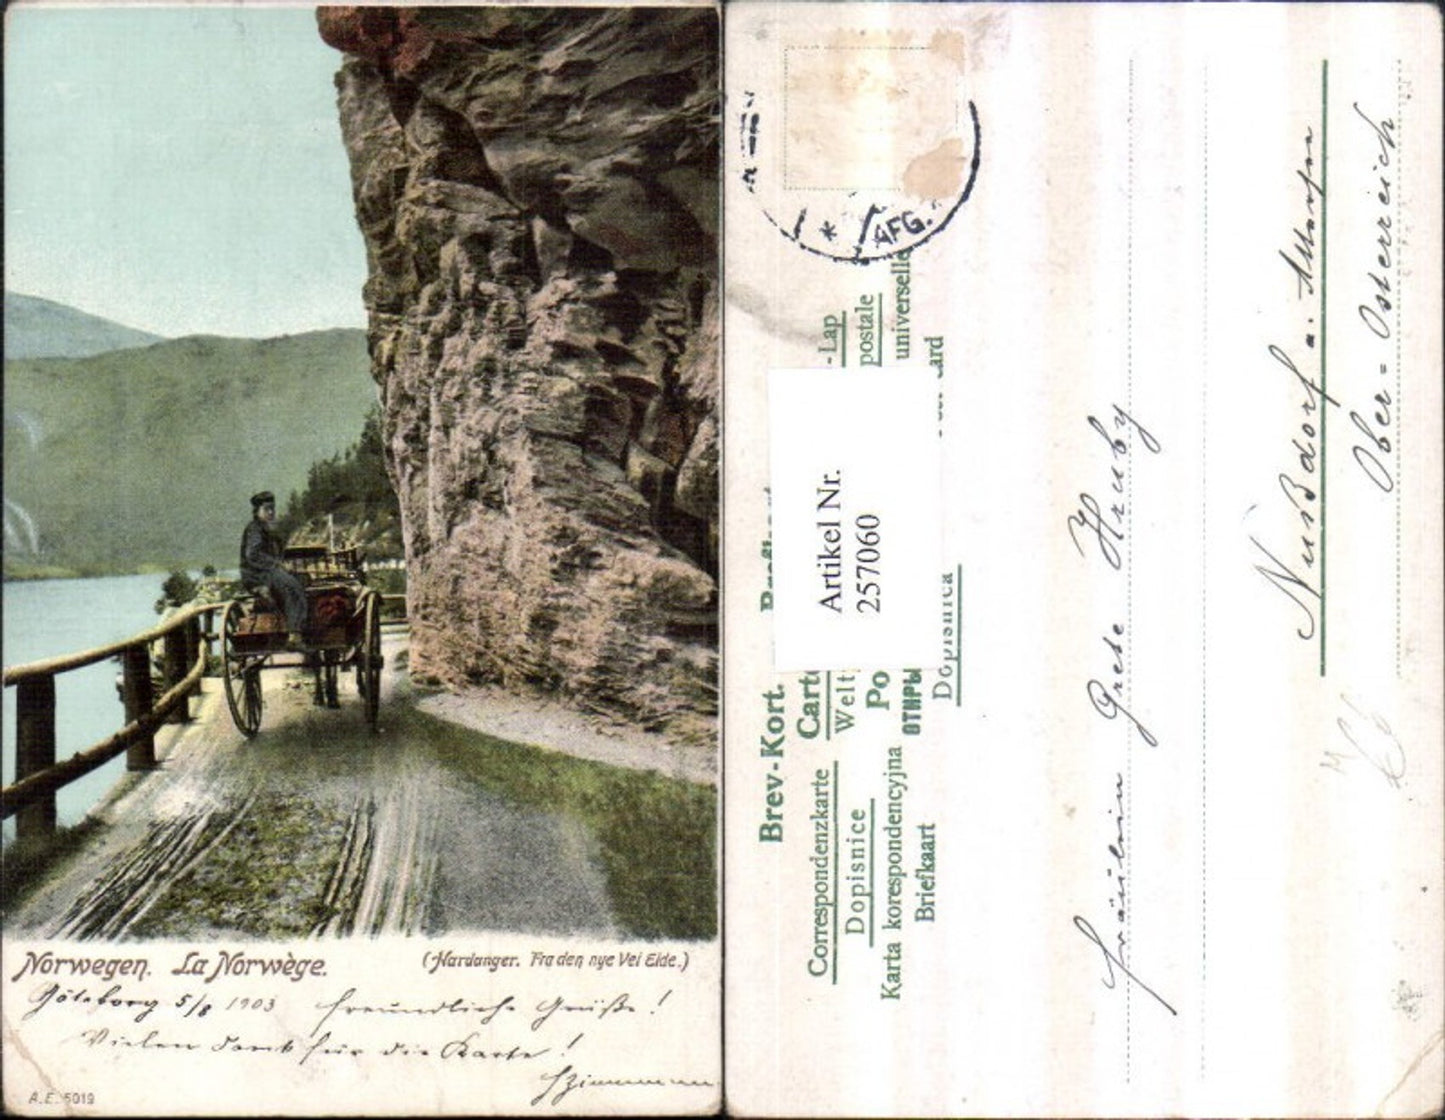 Norwegen. La Norwège.
(Hardanger. Fra den nye Vei Eide.)
Göteborg 5/8 1903 freundliche Grüße!
Vielen Dank für die Karte!
A.E. 5019
AFG.
Brev-Kort.
-Lap
Correspondenzkarte
postale
Dopisnice
universelle
Karta korespondencyjna
Briefkaart
Dopisnica
Artikel Nr.
257060
Fräulein Grete Hruby
Nußdorf a. Attersee
Ober-Österreich